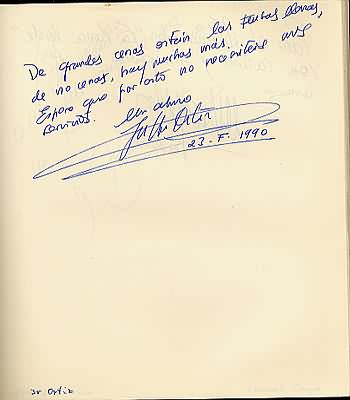 De grandes cenas están las tumbas llenas,
de no cenas, hay muchas más.
Espero que por esto no necesiten mis
servicios.
Un abrazo
Ortiz
23. F. 1990
Dr Ortiz